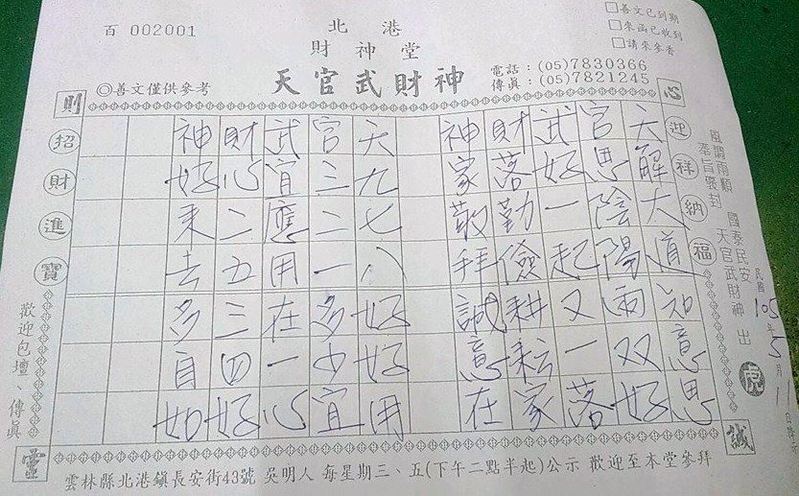 百 002001
北港
財神堂
天官武財神
電話：(05)7830366
傳眞：(05)7821245
□善文已到期
□來函已收到
□請來參香
◎善文僅供參考
心
迎祥納福
誠
風調雨順 國泰民安
天官武財神 出
虎
民國105年5月1日
天解大道知意思
官思陰陽兩双好
武好一起又一落
財落勤儉耕耘家
神家敬拜誠意在
天九七八好好用
官三二一多少宜
武宜應用在一心
財心二五三四好
神好來去多自如
則
招財進寶
靈
歡迎包壇、傳眞
雲林縣北港鎮長安街43號 吳明人 每星期三、五(下午二點半起)公示 歡迎至本堂參拜